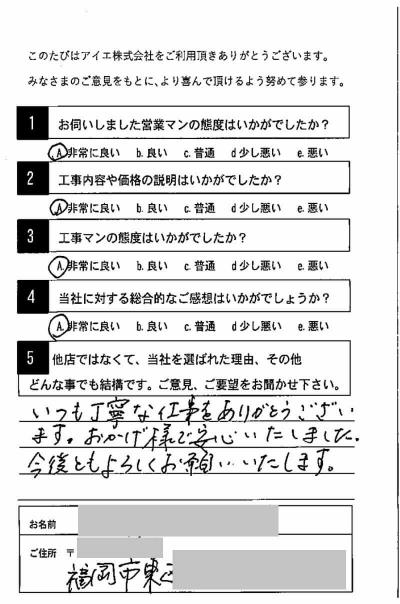 このたびはアイエ株式会社をご利用頂きありがとうございます。
みなさまのご意見をもとに、より喜んで頂けるよう努めて参ります。
1 お伺いしました営業マンの態度はいかがでしたか？
A.非常に良い b.良い c.普通 d少し悪い e.悪い
2 工事内容や価格の説明はいかがでしたか？
A.非常に良い b.良い c.普通 d少し悪い e.悪い
3 工事マンの態度はいかがでしたか？
A.非常に良い b.良い c.普通 d少し悪い e.悪い
4 当社に対する総合的なご感想はいかがでしょうか？
A.非常に良い b.良い c.普通 d少し悪い e.悪い
5 他店ではなくて、当社を選ばれた理由、その他
どんな事でも結構です。ご意見、ご要望をお聞かせ下さい。
いつも丁寧な仕事をありがとうござい
ます。おかげ様で安心いたしました。
今後ともよろしくお願いいたします。
お名前
ご住所 〒
福岡市東区